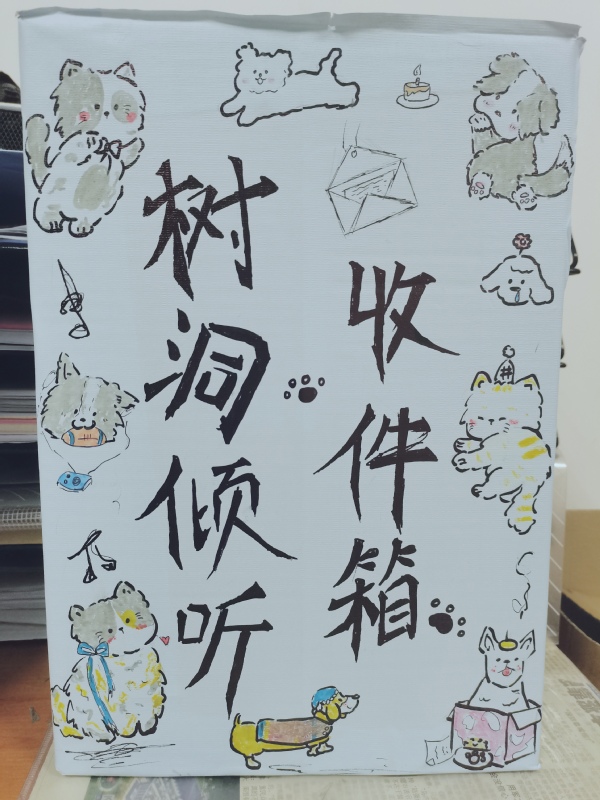 树洞倾听
收件箱